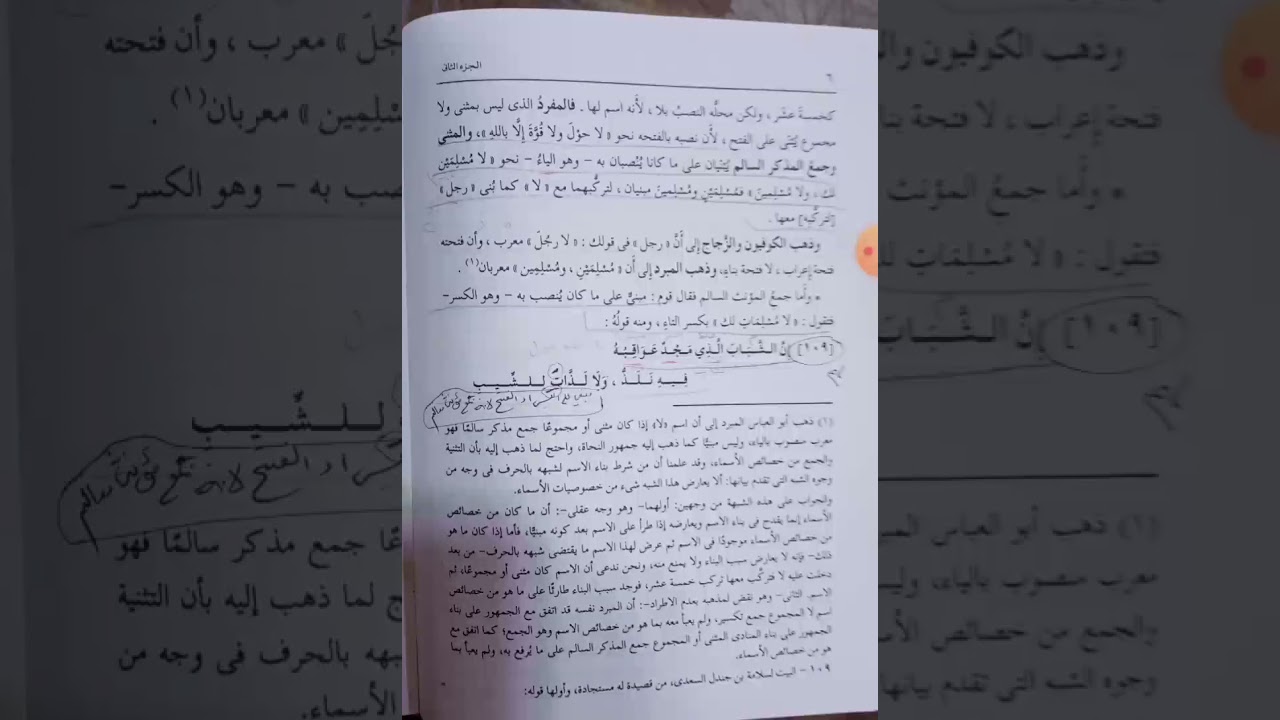 ٦
الجزء الثانى
كخمسةَ عشَر ، ولكن محلُّه النصبُ بلا ، لأَنه اسم لها . فالمفردُ الذى ليس بمثنى ولا
مجموع يُبْنَى على الفتح ، لأَن نصبه بالفتحه نحو « لا حوْلَ ولا قُوَّةَ إِلَّا باللهِ »، والمثنى
وجمعُ المذكر السالم يُبْنَيان على ما كانا يُنْصبان به – وهو الياءُ – نحو « لا مُسْلِمَيْنِ
لك ، ولا مُسْلِمِينَ » فمُسْلِمَيْنِ ومُسْلِمِينَ مبنيان ، لتركُّبهما مع « لا » كما بُنى « رجل »
[لتركُّبه] معها .
وذهب الكوفيون والزَّجاج إِلى أَنَّ « رجل » فى قولك : « لا رجُلَ » معرب ، وأن فتحته
فتحة إعراب ، لا فتحة بناءٍ، وذهب المبرد إلى أن « مُسْلِمَيْنِ ، ومُسْلِمِين » معربان(١) .
* وأَما جمعُ المؤنث السالم فقال قوم : مبنىٌّ على ما كان يُنصب به – وهو الكسر–
فتقول : « لا مُسْلِمَاتِ لك » بكسر التاءِ ، ومنه قولُهُ :
[١٠٩] إِنَّ الـشَّـبَـابَ الَّـذِي مَـجْـدٌ عَـوَاقِـبُـهُ
فِـيـهِ نَـلَـذُّ ، وَلَا لَـذَّاتِ لِـلـشِّـيـبِ
(١) ذهب أبو العباس المبرد إلى أن اسم «لا» إذا كان مثنى أو مجموعًا جمع مذكر سالمًا فهو
معرب منصوب بالياء، وليس مبنيًّا كما ذهب إليه جمهور النحاة، واحتج لما ذهب إليه بأن التثنية
والجمع من خصائص الأسماء، وقد علمنا أن من شرط بناء الاسم لشبهه بالحرف فى وجه من
وجوه الشبه التى تقدم بيانها: ألا يعارض هذا الشبه شىء من خصوصيات الأسماء.
والجواب على هذه الشبهة من وجهين: أولهما– وهو وجه عقلى–: أن ما كان من خصائص
الأسماء إنما يقدح فى بناء الاسم ويعارضه إذا طرأ على الاسم بعد كونه مبنيًّا، فأما إذا كان ما هو
من خصائص الأسماء موجودًا فى الاسم ثم عرض لهذا الاسم ما يقتضى شبهه بالحرف– من بعد
ذلك– فإنه لا يعارض سبب البناء ولا يمنع منه، ونحن ندعى أن الاسم كان مثنى أو مجموعًا، ثم
دخلت عليه لا فتركَّب معها تركب خمسة عشر، فوجد سبب البناء طارئًا على ما هو من خصائص
الاسم. الثانى– وهو نقض لمذهبه بعدم الاطراد–: أن المبرد نفسه قد اتفق مع الجمهور على بناء
اسم لا المجموع جمع تكسير، ولم يعبأ معه بما هو من خصائص الاسم وهو الجمع؛ كما اتفق مع
الجمهور على بناء المنادى المثنى أو المجموع جمع المذكر السالم على ما يُرفع به، ولم يعبأ بما
هو من خصائص الأسماء.
١٠٩ – البيت لسلامة بن جندل السعدى، من قصيدة له مستجادة، وأولها قوله: